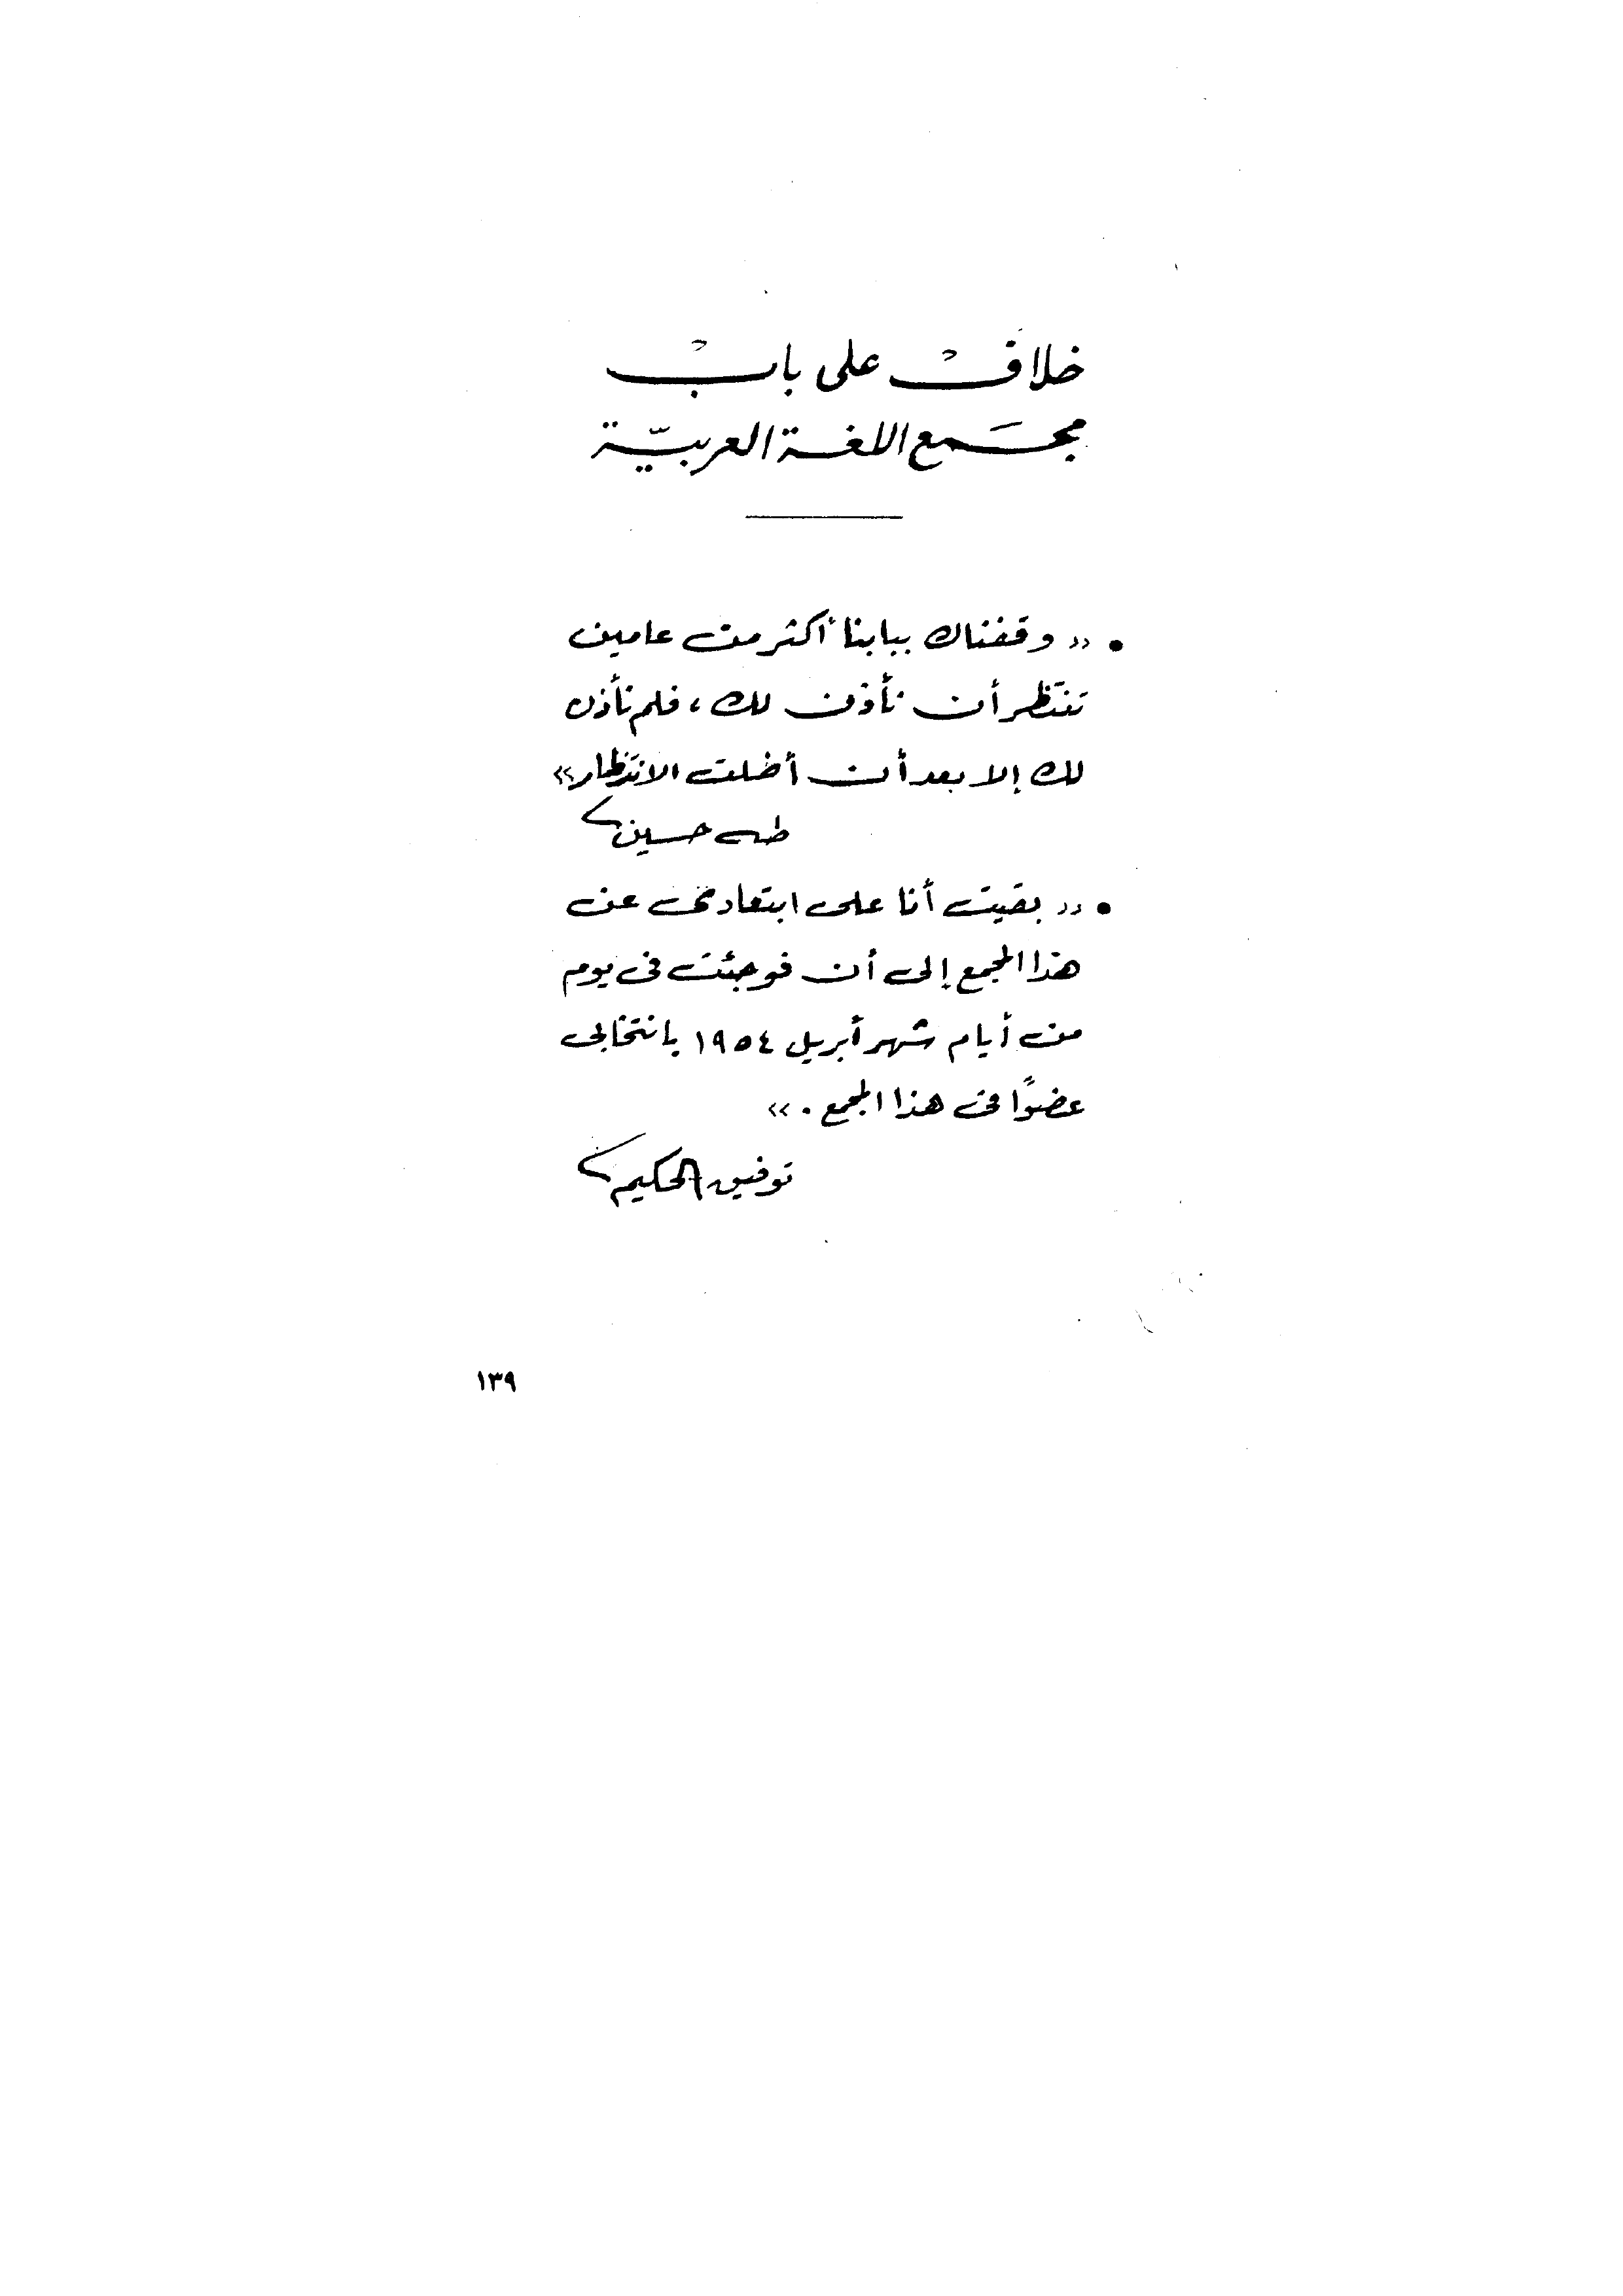 خلاف على باب
مجمَع اللغة العربيّة
• «وقفناك ببابنا أكثر من عامين
تنتظر أن نأذن لك، فلم نأذن
لك إلا بعد أن أضلت الانتظار»
طه حسين
• «بقيت أنا على ابتعادى عن
هذا المجمع إلى أن فوجئت فى يوم
من أيام شهر أبريل ١٩٥٤ بانتخابى
عضوًا فى هذا المجمع.»
توفيق الحكيم
١٣٩